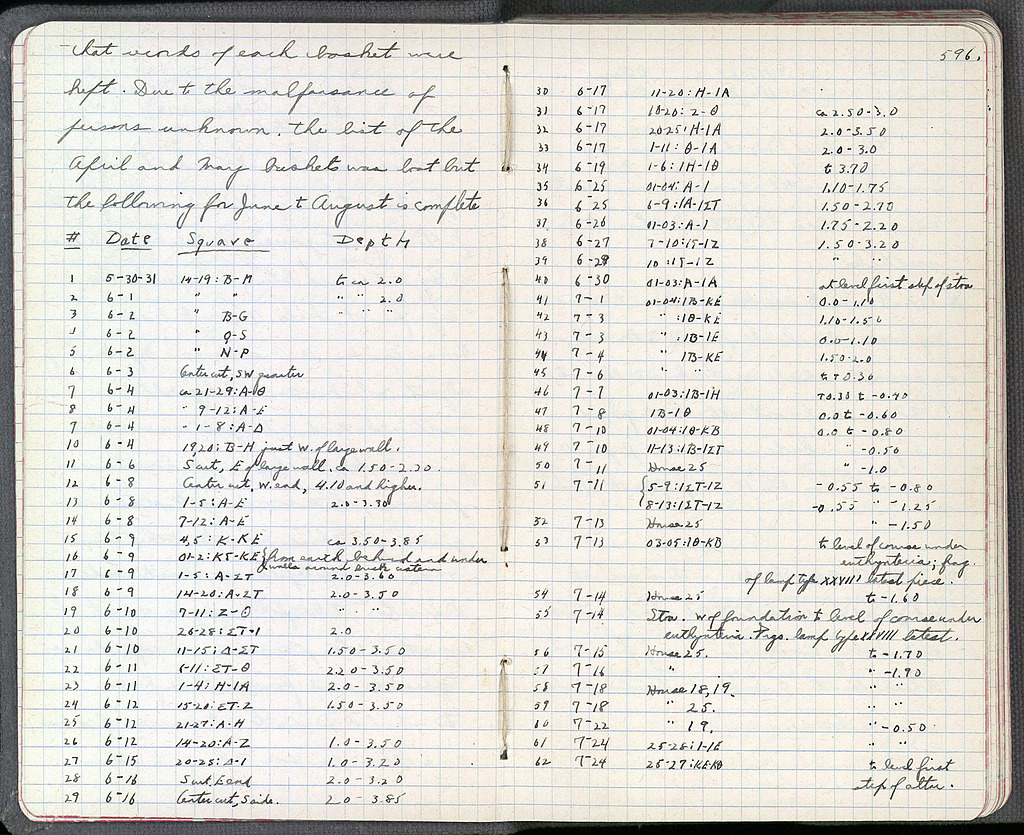 that records of each basket were
kept. Due to the malfaisance of
persons unknown, the list of the
April and May baskets was lost but
the following for June to August is complete
# Date Square Depth
1 5-30-31 14-19: B-M to ca 2.0
2 6-1 " " " " 2.0
3 6-2 " B-G " " "
6-2 " Q-S
5 6-2 " N-P
6 6-3 Center cut, SW quarter
7 6-4 ca 21-29: A-Θ
8 6-4 " 9-12: A-E
6-4 " 1-8: A-Δ
10 6-4 19,20: B-H just W. of large wall.
11 6-6 S cut, E of large wall. ca 1.50-2.30.
12 6-8 Center cut, W. end, 4.10 and higher.
13 6-8 1-5: A-E 2.0-3.30
14 6-8 7-12: A-E
15 6-9 4,5: K-KE ca 3.50-3.85
16 6-9 01-2: KS-KE } from earth behind and under
walls around brick cistern
17 6-9 1-5: A-ΣT 2.0-3.60
18 6-9 14-20: A-ΣT 2.0-3.50
19 6-10 7-11: Z-Θ " . "
20 6-10 26-28: ΣT-I 2.0
21 6-10 11-15: Δ-ΣT 1.50-3.50
22 6-11 (-11: ΣT-Θ 2.20-3.50
23 6-11 1-4: H-IA 2.0-3.50
24 6-12 15-20: ΣT-Z 1.50-3.50
25 6-12 21-27: A-H
26 6-12 14-20: A-Z 1.0-3.50
27 6-15 20-25: Δ-I 1.0-3.20
28 6-16 S cut E end 2.0-3.20
29 6-16 Center cut, S side. 2.0-3.85
596.
30 6-17 11-20: H-IA
31 6-17 10-20: Z-Θ ca 2.50-3.0
32 6-17 20-25: H-IA 2.0-3.50
33 6-17 1-11: Θ-IA 2.0-3.0
34 6-19 1-6: IH-IΘ to 3.70
35 6-25 01-04: A-I 1.10-1.75
36 6-25 6-9: IA-IΣT 1.50-2.70
37 6-26 01-03: A-I 1.75-2.20
38 6-27 7-10: IS-IZ 1.50-3.20
39 6-29 10: IS-IZ " "
40 6-30 01-03: A-IA at level first step of stoa
41 7-1 01-04: IB-KE 0.0-1.10
42 7-3 " : IΘ-KE 1.10-1.50
43 7-3 " : IB-IE 0.0-1.10
44 7-4 " IB-KE 1.50-2.0
45 7-6 " " to +0.30
46 7-7 01-03: IB-IH +0.30 to -0.40
47 7-8 IB-IΘ 0.0 to -0.60
48 7-10 01-04: IΘ-KB 0.0 to -0.80
49 7-10 11-13: IB-IΣT " -0.50
50 7-11 House 25 " -1.0
51 7-11 { 5-9: IΣT-IZ -0.55 to -0.80
8-13: IΣT-IZ -0.55 " -1.25
52 7-13 House 25 " -1.50
53 7-13 03-05: IΘ-KB to level of course under
euthynteria; frag.
of lamp type XXVIII latest piece.
54 7-14 House 25 to -1.60
55 7-14 Stoa. W of foundation to level of course under
euthynteria. Frgs. lamp type XXVIII latest.
56 7-15 House 25. to -1.70
57 7-16 " " -1.90
58 7-18 House 18, 19. " "
59 7-18 " 25. " "
60 7-22 " 19. " -0.50
61 7-24 25-28: I-IE " "
62 7-24 25-27: KE-KΘ to level first
step of altar.